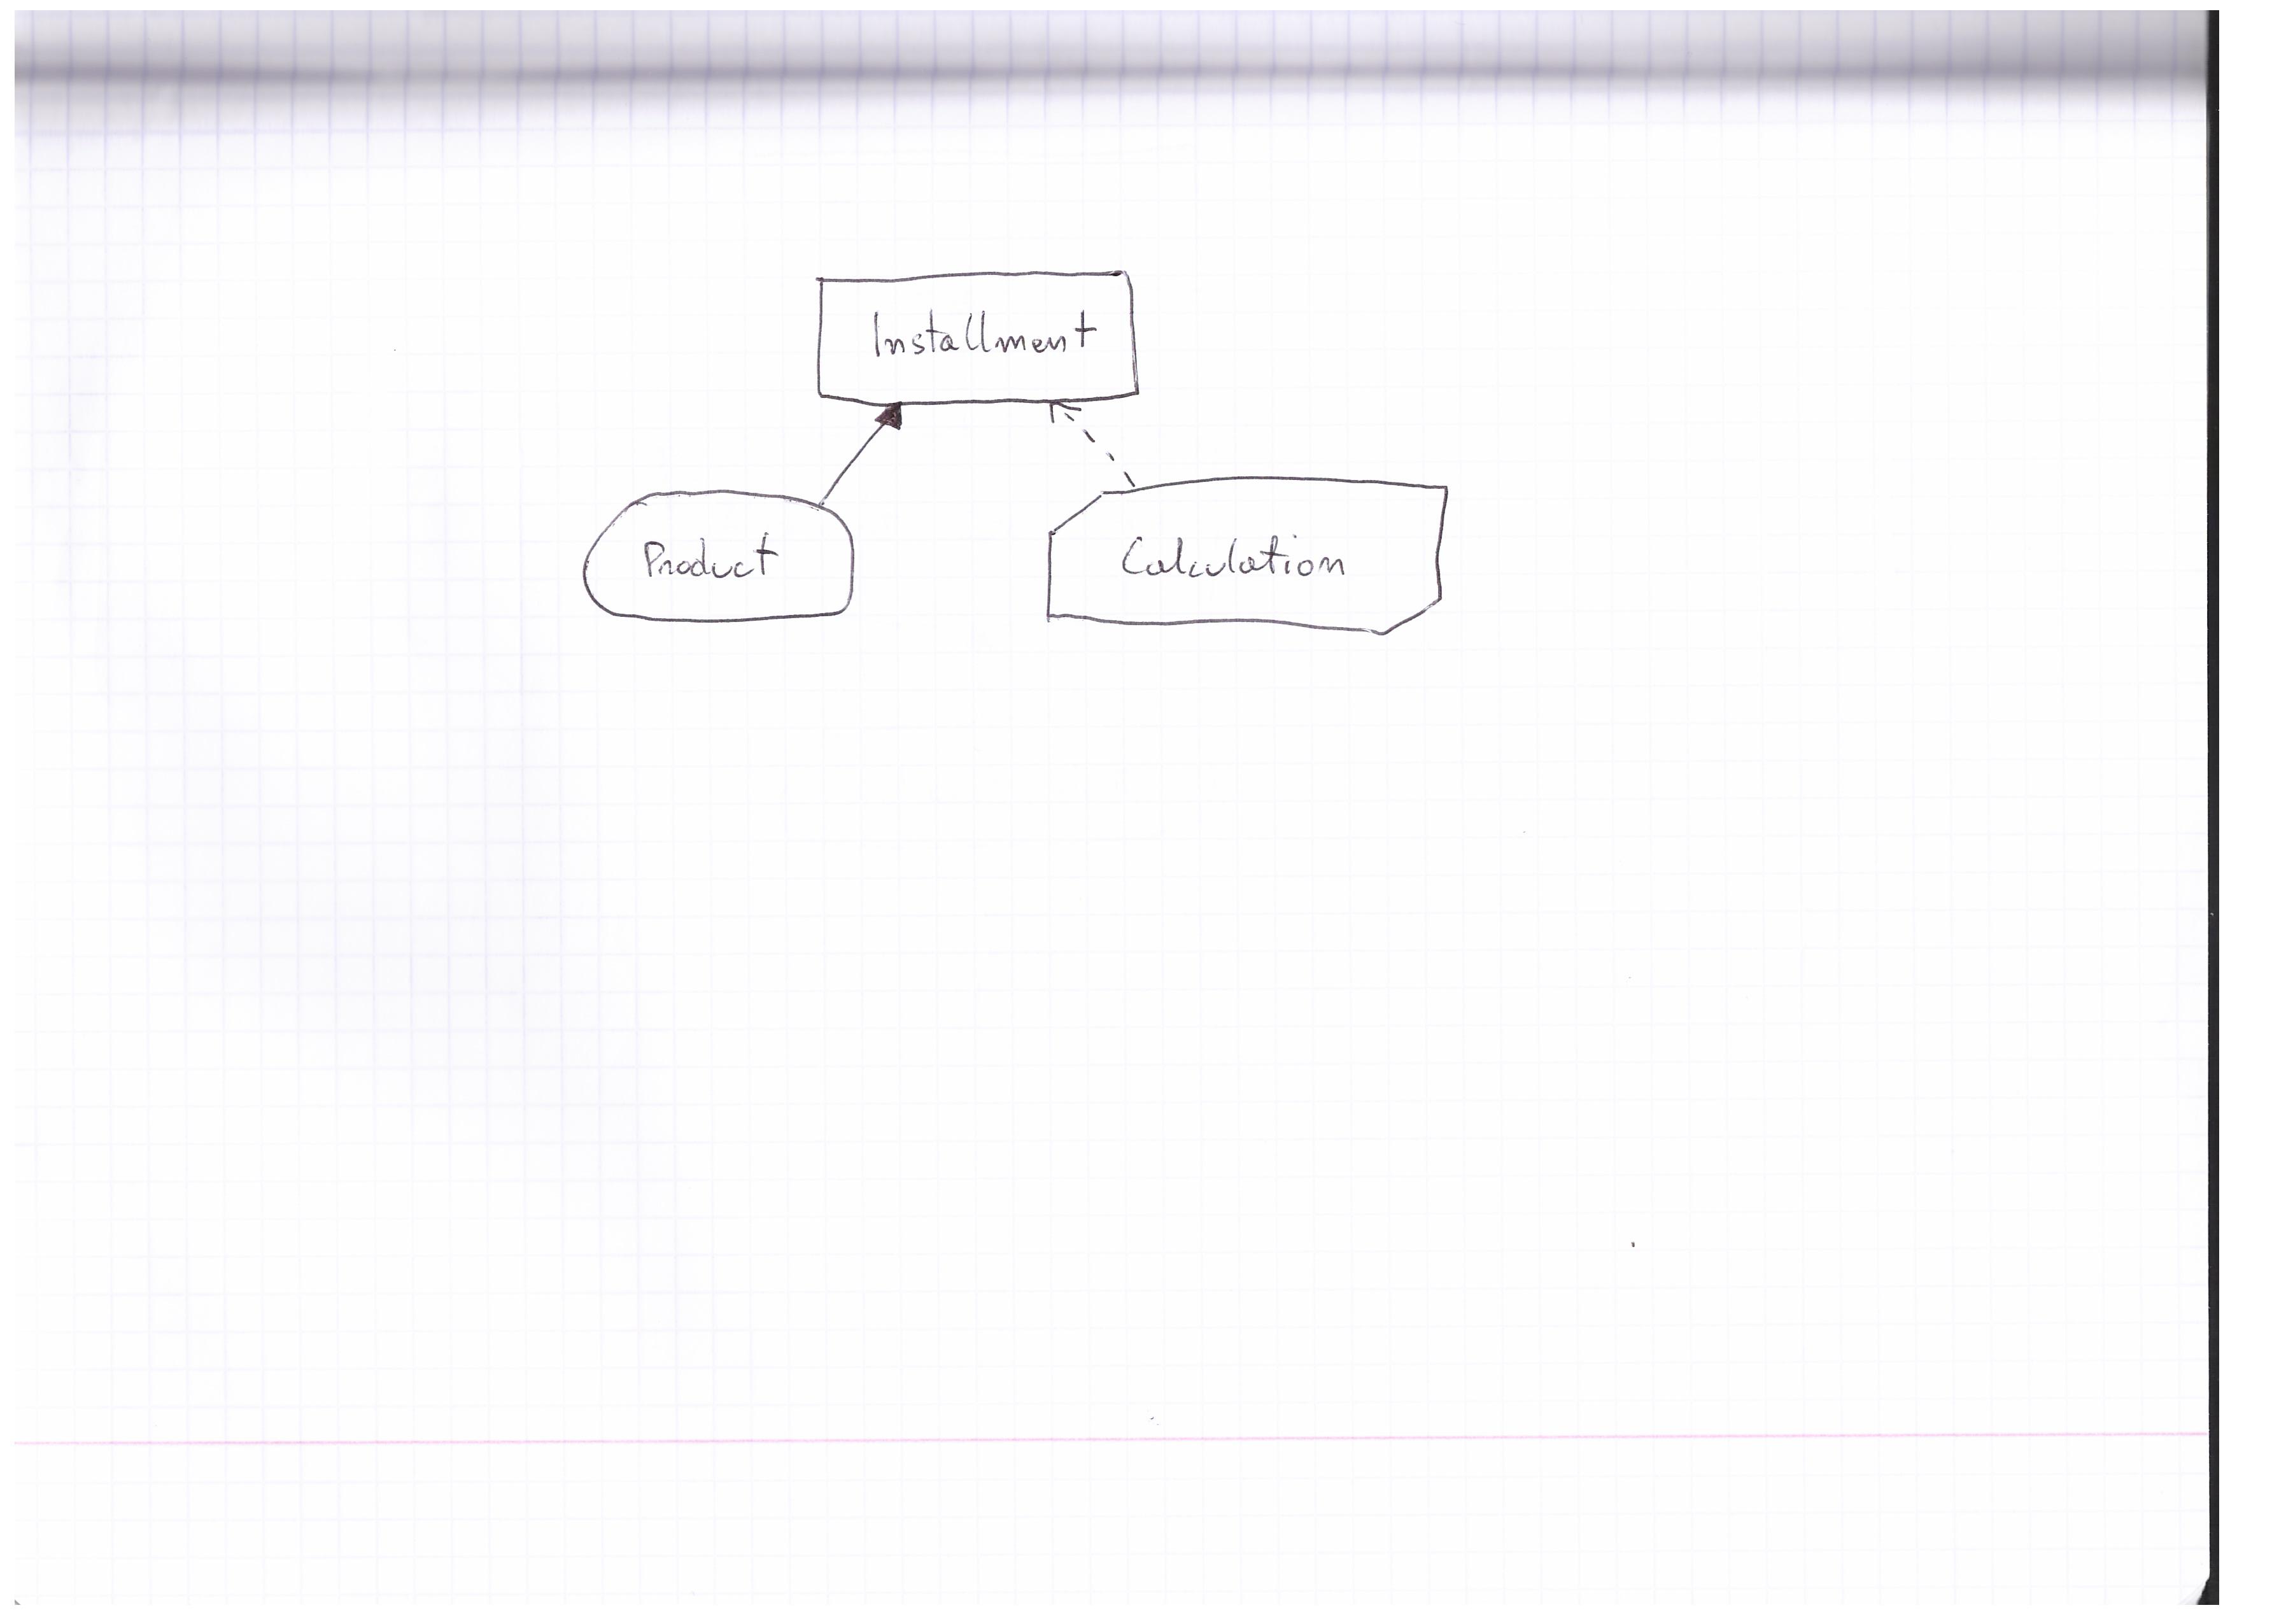 Installment
Product
Calculation